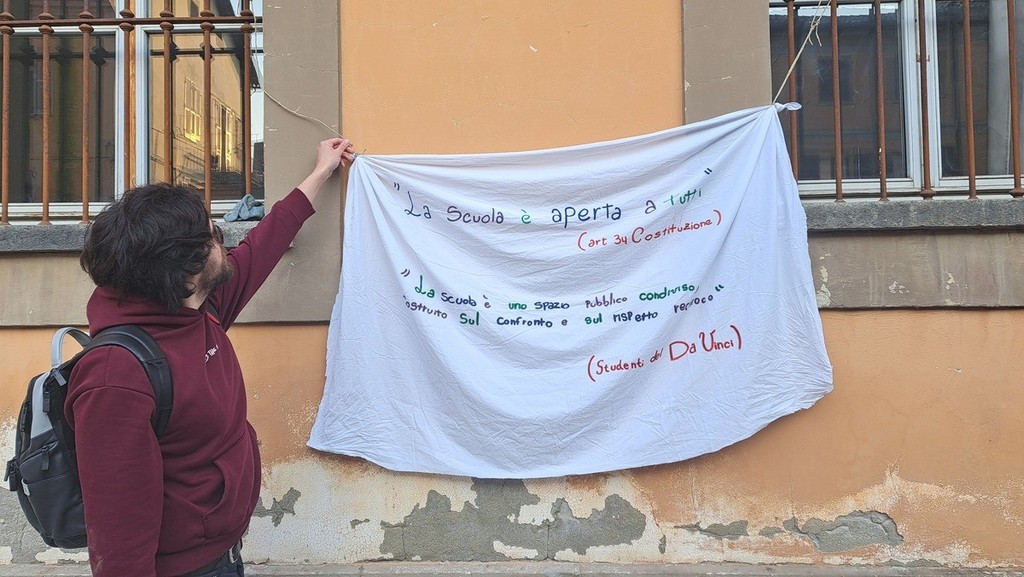 " La Scuola è aperta a tutti "
(art 34 Costituzione)
" La scuola è uno spazio pubblico condiviso,
costruito sul confronto e sul rispetto reciproco "
(Studenti del Da Vinci)